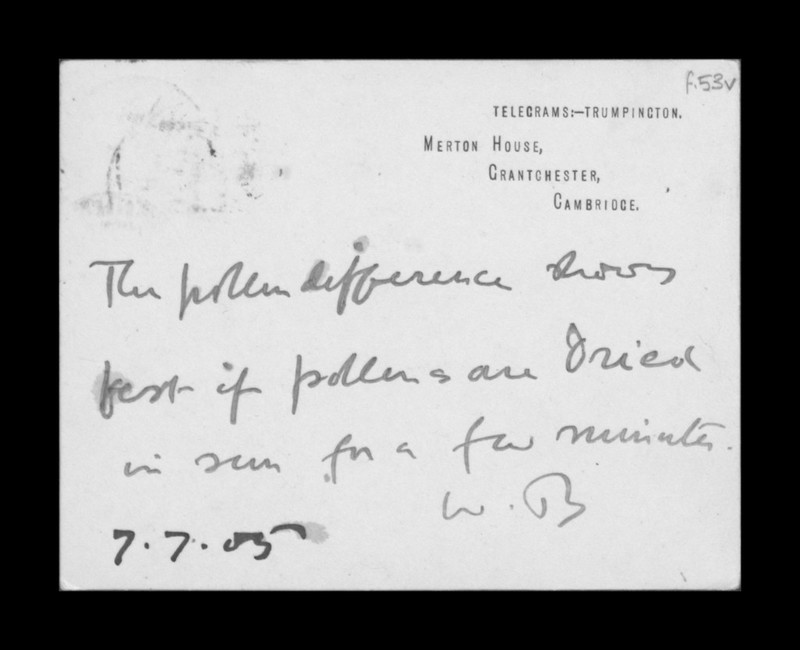 f.53v
TELEGRAMS:—TRUMPINGTON.
MERTON HOUSE,
GRANTCHESTER,
CAMBRIDGE.
The pollen difference shows
best if pollens are dried
in sun for a few minutes.
W. B
7.7.05